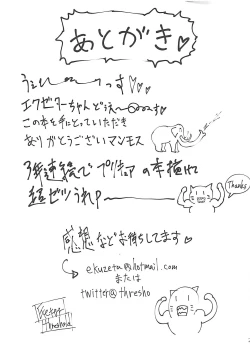 あとがき♡
うぇい～～っす♡♡
エクゼターちゃんどぇ～す
この本を手にとっていただき
ありがとうございマンモス
3年連続でプリキュアの本描けて
超ゼツうれP
Thanks
感想などお待ちしてます♡
ekuzeta@hotmail.com
または
twitter@thresho